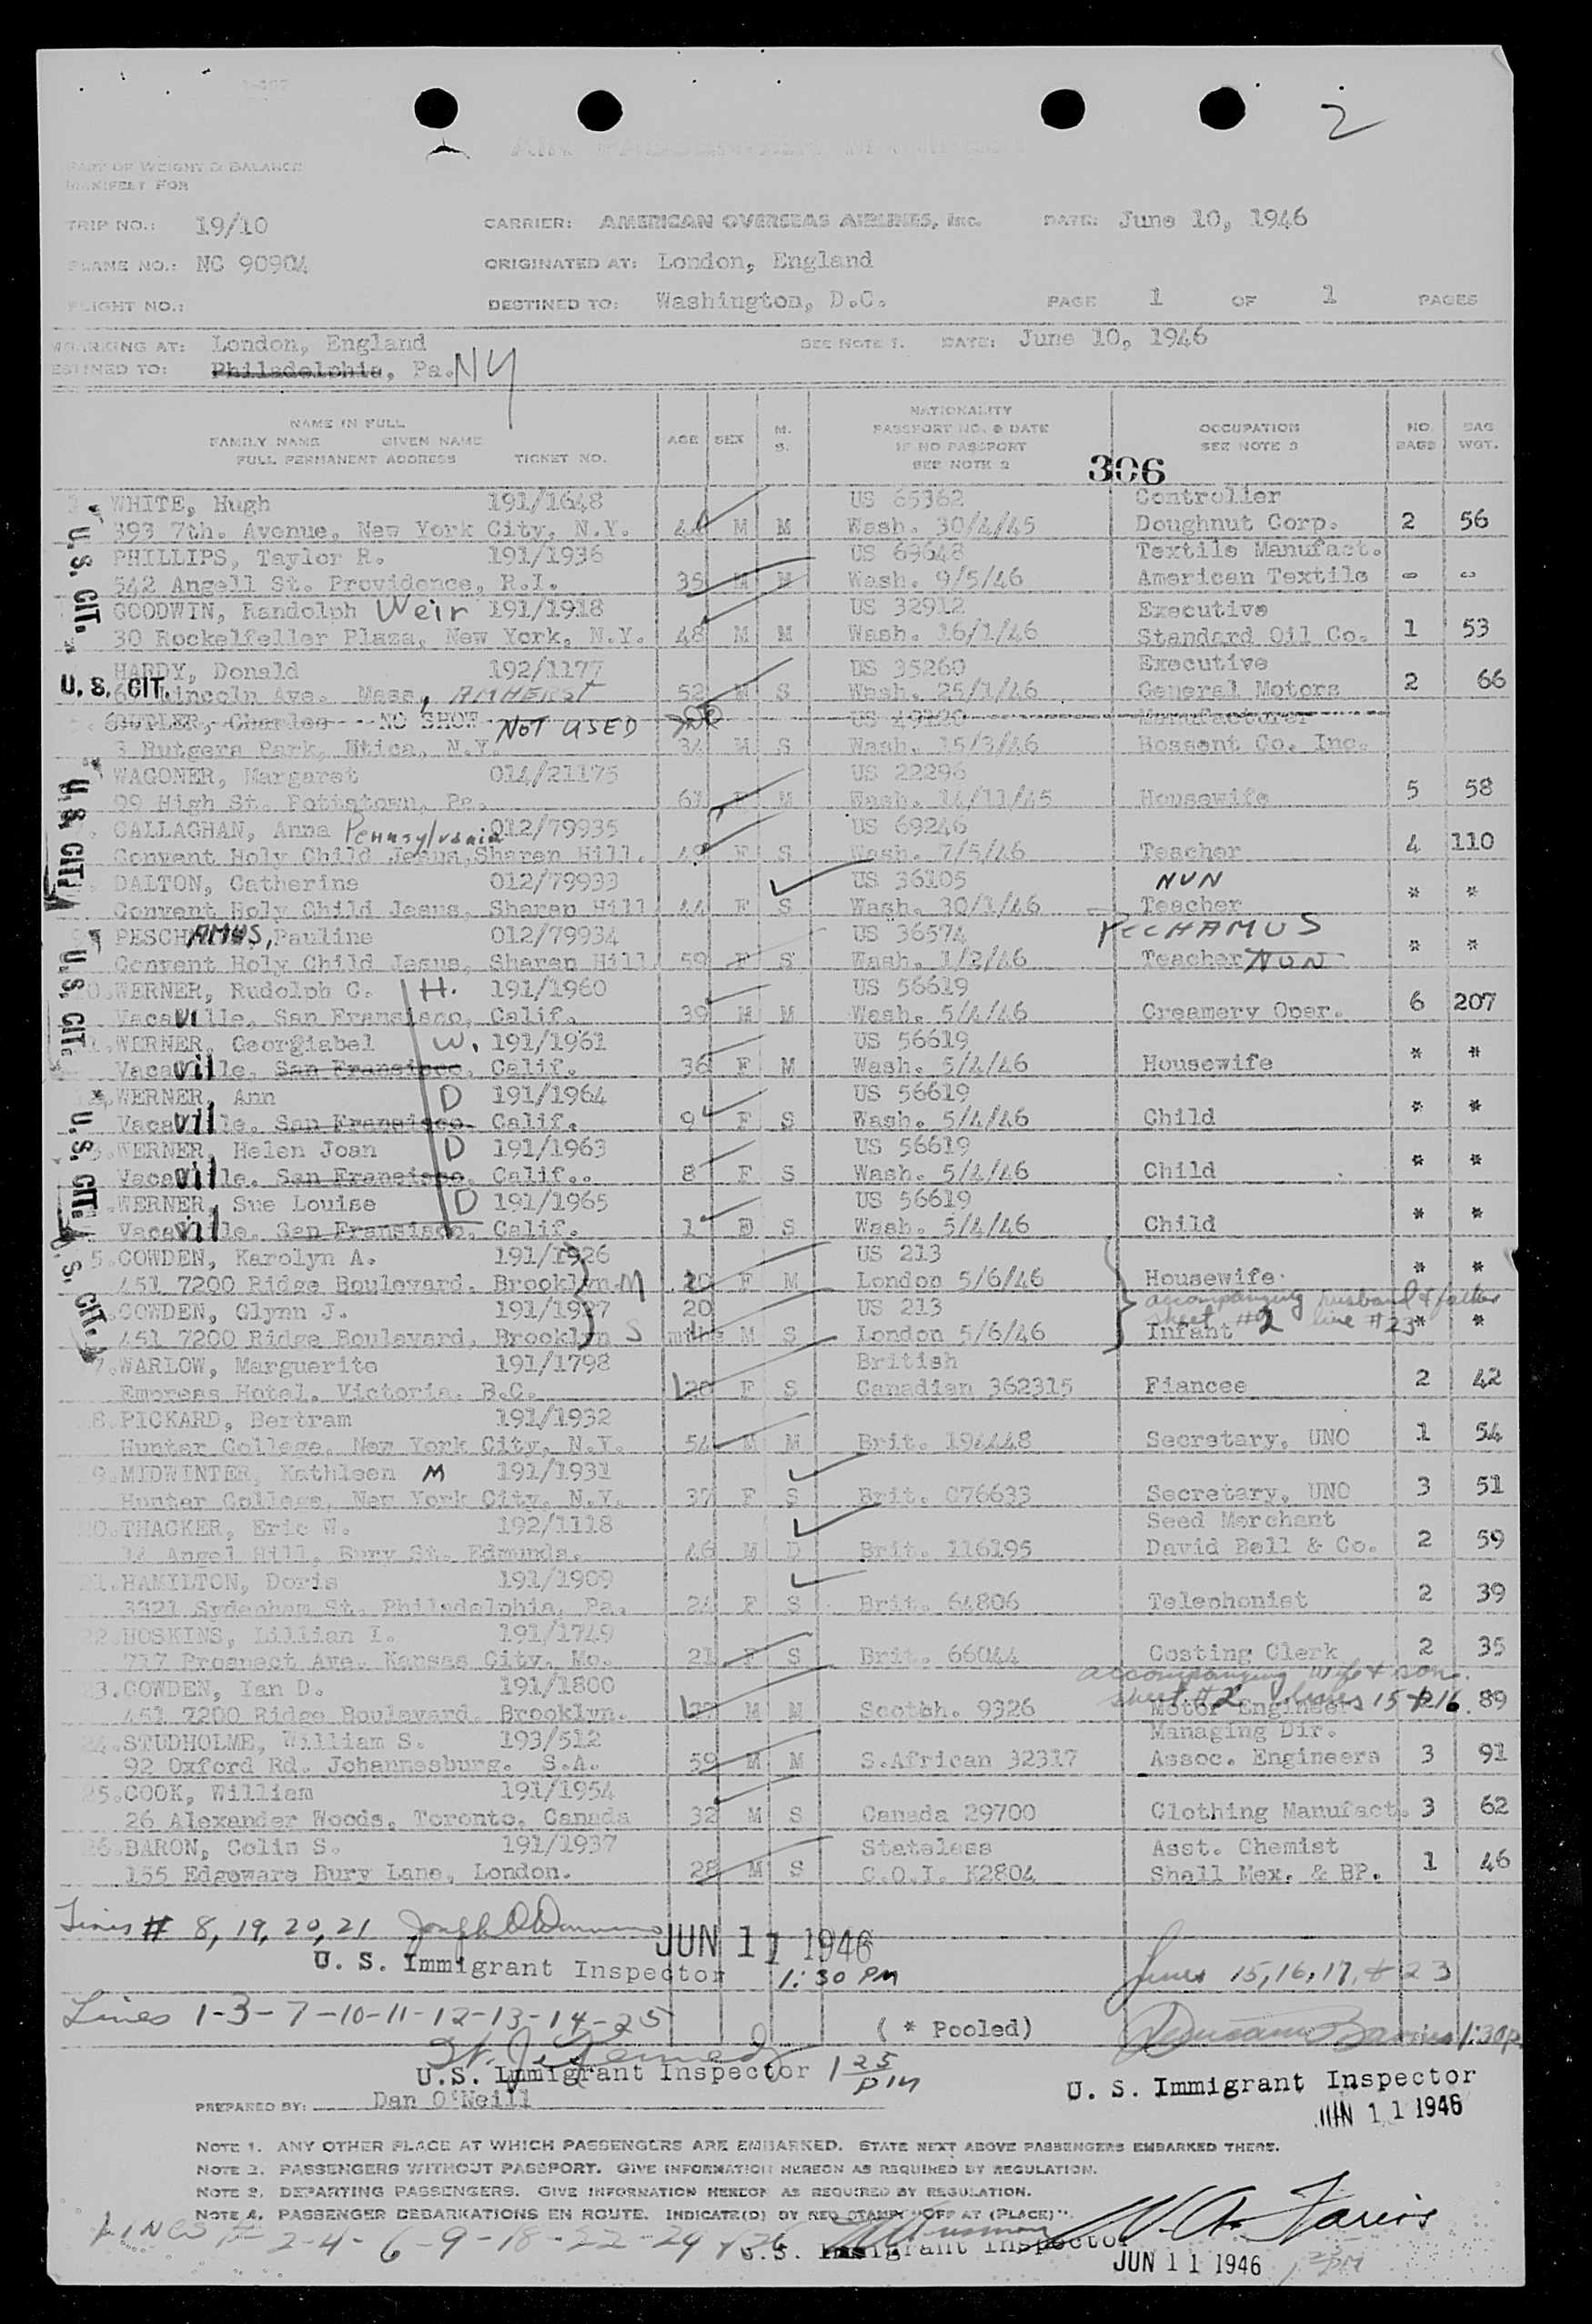 2
PART OF WEIGHT & BALANCE
MANIFEST FOR
TRIP NO.: 19/10 CARRIER: AMERICAN OVERSEAS AIRLINES, Inc. DATE: June 10, 1946
PLANE NO.: NC 90904 ORIGINATED AT: London, England
FLIGHT NO.: DESTINED TO: Washington, D.C. PAGE 1 OF 1 PAGES
London, England SEE NOTE 1. DATE: June 10, 1946
Philadelphia, Pa. NY
NAME IN FULL
FAMILY NAME GIVEN NAME
FULL PERMANENT ADDRESS TICKET NO. AGE SEX M. S. NATIONALITY PASSPORT NO. & DATE IF NO PASSPORT SEE NOTE 2 OCCUPATION SEE NOTE 3 NO. BAGS BAG WGT.
306
WHITE, Hugh 191/1648 US 65362 Controller
393 7th. Avenue, New York City, N.Y. 44 M M Wash. 30/4/45 Doughnut Corp. 2 56
PHILLIPS, Taylor R. 191/1936 US 69648 Textile Manufact.
542 Angell St. Providence, R.I. 35 M M Wash. 9/5/46 American Textile - -
GOODWIN, Randolph Weir 191/1918 US 32912 Executive
30 Rockelfeller Plaza, New York, N.Y. 48 M M Wash. 16/1/46 Standard Oil Co. 1 53
HARDY, Donald 192/1177 US 35260 Executive
U. S. CIT. Lincoln Ave. Mass, AMHERST 52 M S Wash. 25/1/46 General Motors 2 66
BUTLER, Charles --- NO SHOW NOT USED US 49120 Manufacturer
3 Rutgers Park, Utica, N.Y. 34 M S Wash. 15/3/46 Bossent Co. Inc.
WAGONER, Margaret 014/21175 US 22296
99 High St. Pottstown, Pa. 61 F M Wash. 14/11/45 Housewife 5 58
CALLAGHAN, Anna Pennsylvania 012/79935 US 69246
Convent Holy Child Jesus, Sharen Hill. 49 F S Wash. 7/5/46 Teacher 4 110
DALTON, Catherine 012/79933 US 36105 NUN
Convent Holy Child Jesus, Sharen Hill 44 F S Wash. 30/1/46 Teacher * *
PESCHAMUS, Pauline 012/79934 US 36574 PECHAMUS
Convent Holy Child Jesus, Sharen Hill 59 F S Wash. 1/2/46 Teacher NUN * *
10. WERNER, Rudolph C. H. 191/1960 US 56619
Vacaville, San Fransisco, Calif. 39 M M Wash. 5/4/46 Creamery Oper. 6 207
WERNER, Georgiabel W. 191/1961 US 56619
Vacaville, San Fransisco, Calif. 36 F M Wash. 5/4/46 Housewife * *
WERNER, Ann D 191/1964 US 56619
Vacaville, San Fransisco, Calif. 9 F S Wash. 5/4/46 Child * *
WERNER, Helen Joan D 191/1963 US 56619
Vacaville, San Fransisco, Calif.. 8 F S Wash. 5/4/46 Child * *
WERNER, Sue Louise D 191/1965 US 56619
Vacaville, San Fransisco, Calif. 1 F S Wash. 5/4/46 Child * *
5. COWDEN, Karolyn A. 191/1926 US 213
451 7200 Ridge Boulevard, Brooklyn. M 20 F M London 5/6/46 Housewife * *
COWDEN, Glynn J. 191/1927 20 US 213 accompanying husband & father
451 7200 Ridge Boulevard, Brooklyn S mths M S London 5/6/46 Infant sheet #2 line #23 * *
7. WARLOW, Marguerite 191/1798 British
Empress Hotel, Victoria, B.C. 28 F S Canadian 362315 Fiancee 2 42
8. PICKARD, Bertram 191/1932
Hunter College, New York City, N.Y. 54 M M Brit. 194448 Secretary, UNO 1 54
9. MIDWINTER, Kathleen M 191/1931
Hunter College, New York City, N.Y. 37 F S Brit. C76633 Secretary, UNO 3 51
20. THACKER, Eric W. 192/1118 Seed Merchant
14 Angel Hill, Bury St. Edmunds. 46 M D Brit. 116195 David Bell & Co. 2 59
21. HAMILTON, Doris 191/1909
3321 Sydenham St. Philadelphia, Pa. 24 F S Brit. 64806 Telephonist 2 39
22. HOSKINS, Lillian I. 191/1749
717 Prospect Ave. Kansas City, Mo. 21 F S Brit. 66044 Costing Clerk 2 35
23. COWDEN, Ian D. 191/1800 accompanying wife & son.
451 7200 Ridge Boulevard, Brooklyn. M M Scotch. 9326 Motor Engineer sheet #2 lines 15 & 16. 89
24. STUDHOLME, William S. 193/512 Managing Dir.
92 Oxford Rd. Johannesburg. S.A. 59 M M S.African 32317 Assoc. Engineers 3 91
25. COOK, William 191/1954
26 Alexander Woods, Toronto, Canada 32 M S Canada 29700 Clothing Manufact. 3 62
26. BARON, Colin S. 191/1937 Stateless Asst. Chemist
155 Edgeware Bury Lane, London. 28 M S C.O.I. K2804 Shell Mex. & BP. 1 46
U. S. CIT.
U. S. CIT.
U. S. CIT.
U. S. CIT.
S. CIT.
Lines # 8, 19, 20, 21 JUN 11 1946
U. S. Immigrant Inspector 1:30 PM Lines 15, 16, 17, & 23
Lines 1-3-7-10-11-12-13-14-25
( * Pooled) 1:30p
U.S. Immigrant Inspector 1 25 pm
U. S. Immigrant Inspector
PREPARED BY: Dan O'Neill JUN 11 1946
NOTE 1. ANY OTHER PLACE AT WHICH PASSENGERS ARE EMBARKED. STATE NEXT ABOVE PASSENGERS EMBARKED THERE.
NOTE 2. PASSENGERS WITHOUT PASSPORT. GIVE INFORMATION HEREON AS REQUIRED BY REGULATION.
NOTE 3. DEPARTING PASSENGERS. GIVE INFORMATION HEREON AS REQUIRED BY REGULATION.
NOTE 4. PASSENGER DEBARKATIONS EN ROUTE. INDICATE(D) BY RED STAMP "OFF AT (PLACE)".
LINES # 2-4-6-9-18-22-24 & 26
U.S. Immigrant Inspector
JUN 11 1946